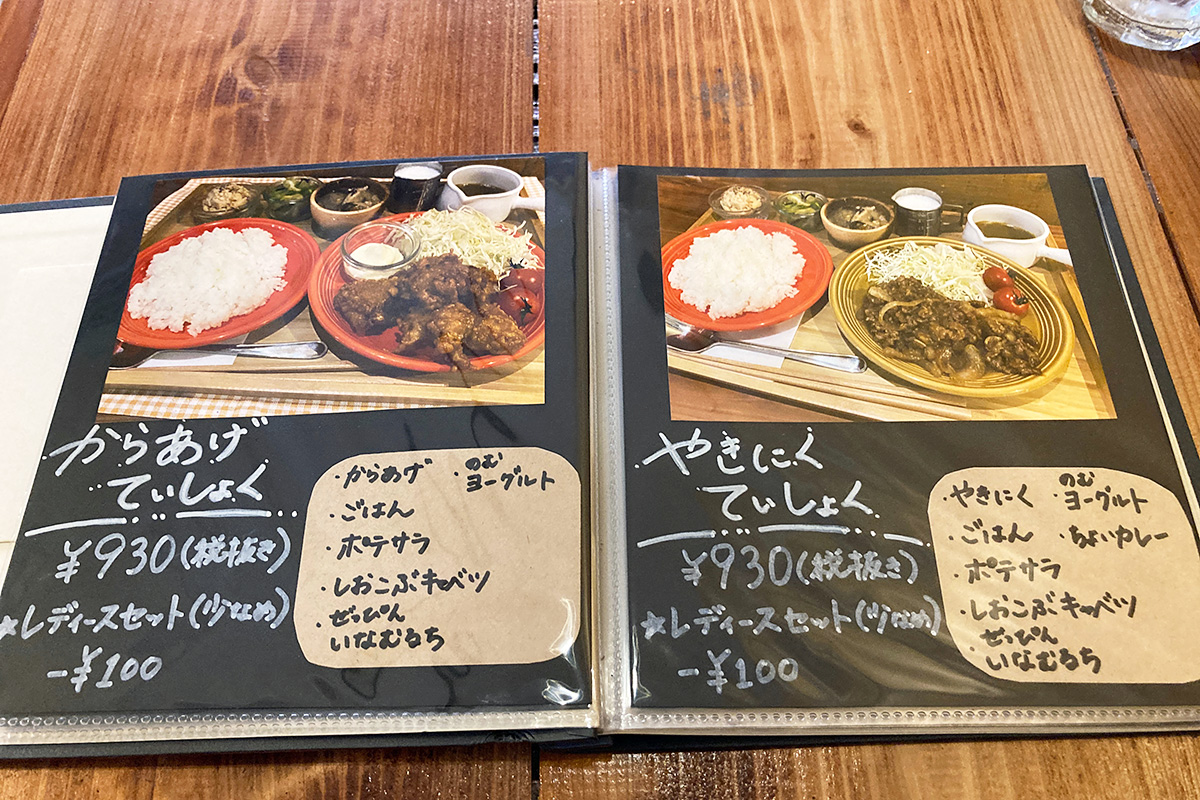 からあげ
ていしょく
¥930(税抜き)
★レディースセット(少なめ)
-¥100
・からあげ
・ごはん
・ポテサラ
・しおこぶキャベツ
・ぜっぴん
いなむるち
・のむ
ヨーグルト
やきにく
ていしょく
¥930(税抜き)
★レディースセット(少なめ)
-¥100
・やきにく
・ごはん
・ポテサラ
・しおこぶキャベツ
・ぜっぴん
いなむるち
・のむ
ヨーグルト
・ちょいカレー